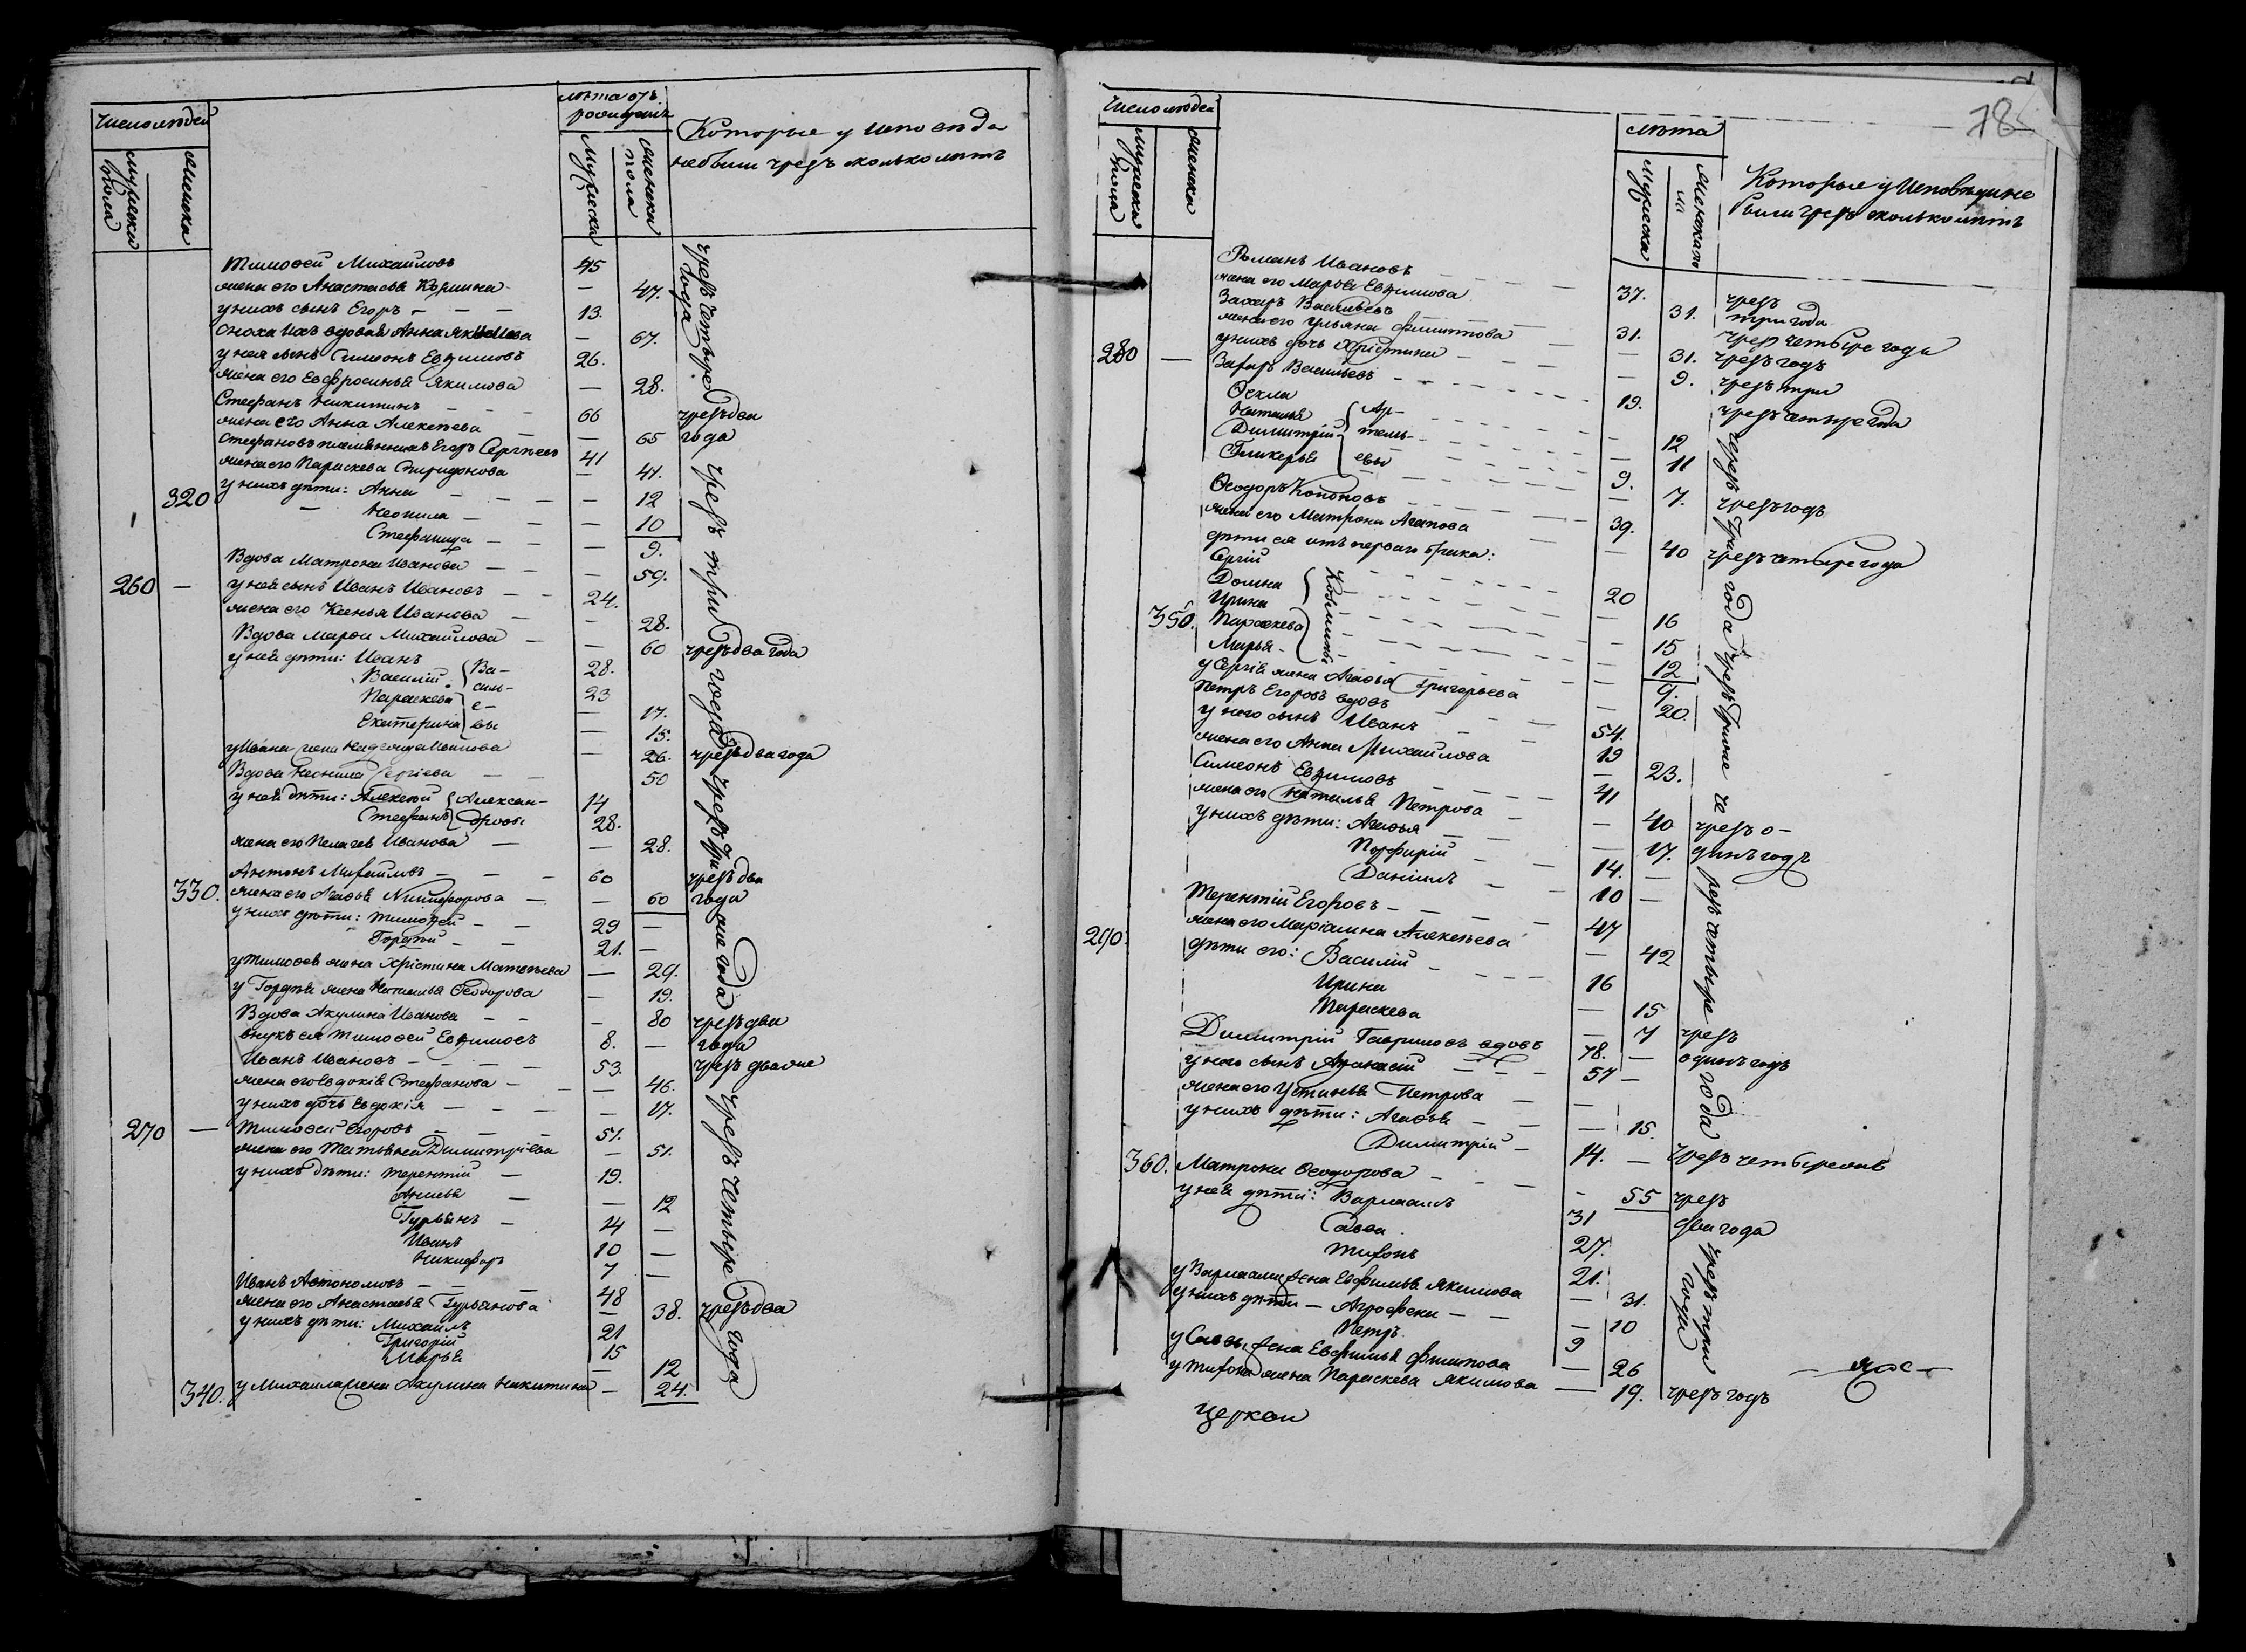 Число людей
мужеска пола
женска
лѣта отъ рожденія
мужеска
женска пола
Которые у исповѣда
небыли чрезъ сколько лѣтъ
Тимоѳей Михайловъ 45
жена его Анастасья Козмина 47.
у нихъ сынъ Егоръ 13.
сноха ихъ вдовая Анна 67.
у нея сынъ Симеонъ Евфимовъ 26.
жена его Евфросинья Якимова 28.
чрезъ четыре года
Стефанъ Никитинъ 66 чрезъ два
жена его Анна Алексѣева 65 года
Стефановъ племянникъ Егоръ Сергѣевъ 41
жена его Параскева Спиридонова 41.
320 у нихъ дѣти: Анна 12
Неонила 10
Стефанида 9.
Вдова Матрона Иванова 59.
260 — у ней сынъ Иванъ Ивановъ 24.
жена его Ксенья Иванова 28.
чрезъ три года
Вдова Марѳа Михайлова 60 чрезъ два года
у ней дѣти: Иванъ 28.
Василій 23
Параскева 17.
Екатерина 15.
Васильевы
у Ивана жена Надежда Иванова 26. чрезъ два года
Вдова Неонила Сергіева 50
у ней дѣти: Алексѣй 14
Стефанъ 28.
Александровы
жена его Пелагея Иванова 28.
Антонъ Михайловъ 60 чрезъ два
330. жена его Агафья Никифорова 60 года
у нихъ дѣти: Тимоѳей 29
Гордѣй 21.
у Тимоѳея жена Христина Матвѣева 29.
у Гордѣя жена Наталья Ѳеодорова 19.
Вдова Акулина Иванова 80 чрезъ два
внукъ ея Тимоѳей Евфимовъ 8. года
Иванъ Ивановъ 53.
жена его Евдокія Стефанова 46.
у нихъ дочь Евдокія 17.
270 — Тимоѳей Егоровъ 51.
жена его Татьяна Димитріева 51.
у нихъ дѣти: Терентій 19.
Анисья 12
Гурьянъ 14
Иванъ 10
Никифоръ 7
чрезъ четыре года
Иванъ Автономовъ 48
жена его Анастасья Гурьянова 38. чрезъ два
у нихъ дѣти: Михаилъ 21
Григорій 15
Марья 12
340. у Михаила жена Акулина Никитина 24.
785
Число людей
мужеска пола
женска
лѣта
мужеска
Которые у Исповѣди не
были чрезъ сколько лѣтъ
Романъ Ивановъ 37. чрезъ
жена его Марья Евфимова 31. три года
Захаръ Васильевъ 31. чрез четыре года
жена его Ульяна Филиппова 31. чрезъ годъ
280 — у нихъ дочь Христина 9. чрезъ три
Захаръ Васильевъ 19. чрезъ четыре года
Ѳекла 12
Наталья 11
Димитрій 9.
Гликерья 7. чрезъ годъ
Артемьевы
Ѳеодоръ Кононовъ 39.
жена его Матрона Агапова 40 чрезъ четыре года
дѣти ея отъ перваго брака:
Сергій 20
Домна 16
Ирина 15
350. Параскева 12
Марья 9.
у Сергія жена Агафья Григорьева 20.
Петръ Егоровъ вдовъ 54.
у него сынъ Иванъ 19
жена его Анна Михайлова 23.
Симеонъ Евфимовъ 41
жена его Наталья Петрова 40 чрезъ о-
у нихъ дѣти: Агафья 17. динъ годъ
Порфирій 14.
Даніилъ 10
Терентій Егоровъ 47
290. жена его Маріамна Алексѣева 42
дѣти его: Василій 16
Ирина 15
Параскева 7 чрезъ
Димитрій Гавриловъ вдовъ 78. одинъ годъ
у него сынъ Аѳанасій 57
жена его Устинья Петрова
у нихъ дѣти: Агафья 15.
Димитрій 14.
360. Матрона Ѳеодорова 55 чрезъ
у ней дѣти: Варлаамъ 31 два года
Савва 27.
Тихонъ 21.
у Варлаама жена Евфимья Якимова 31.
у нихъ дѣти — Агрофена 10
Петръ 9
чрезъ три года
у Саввы жена Евфимья Филипова 26
у Тихона жена Параскева Якимова 19. чрезъ годъ
Церкви